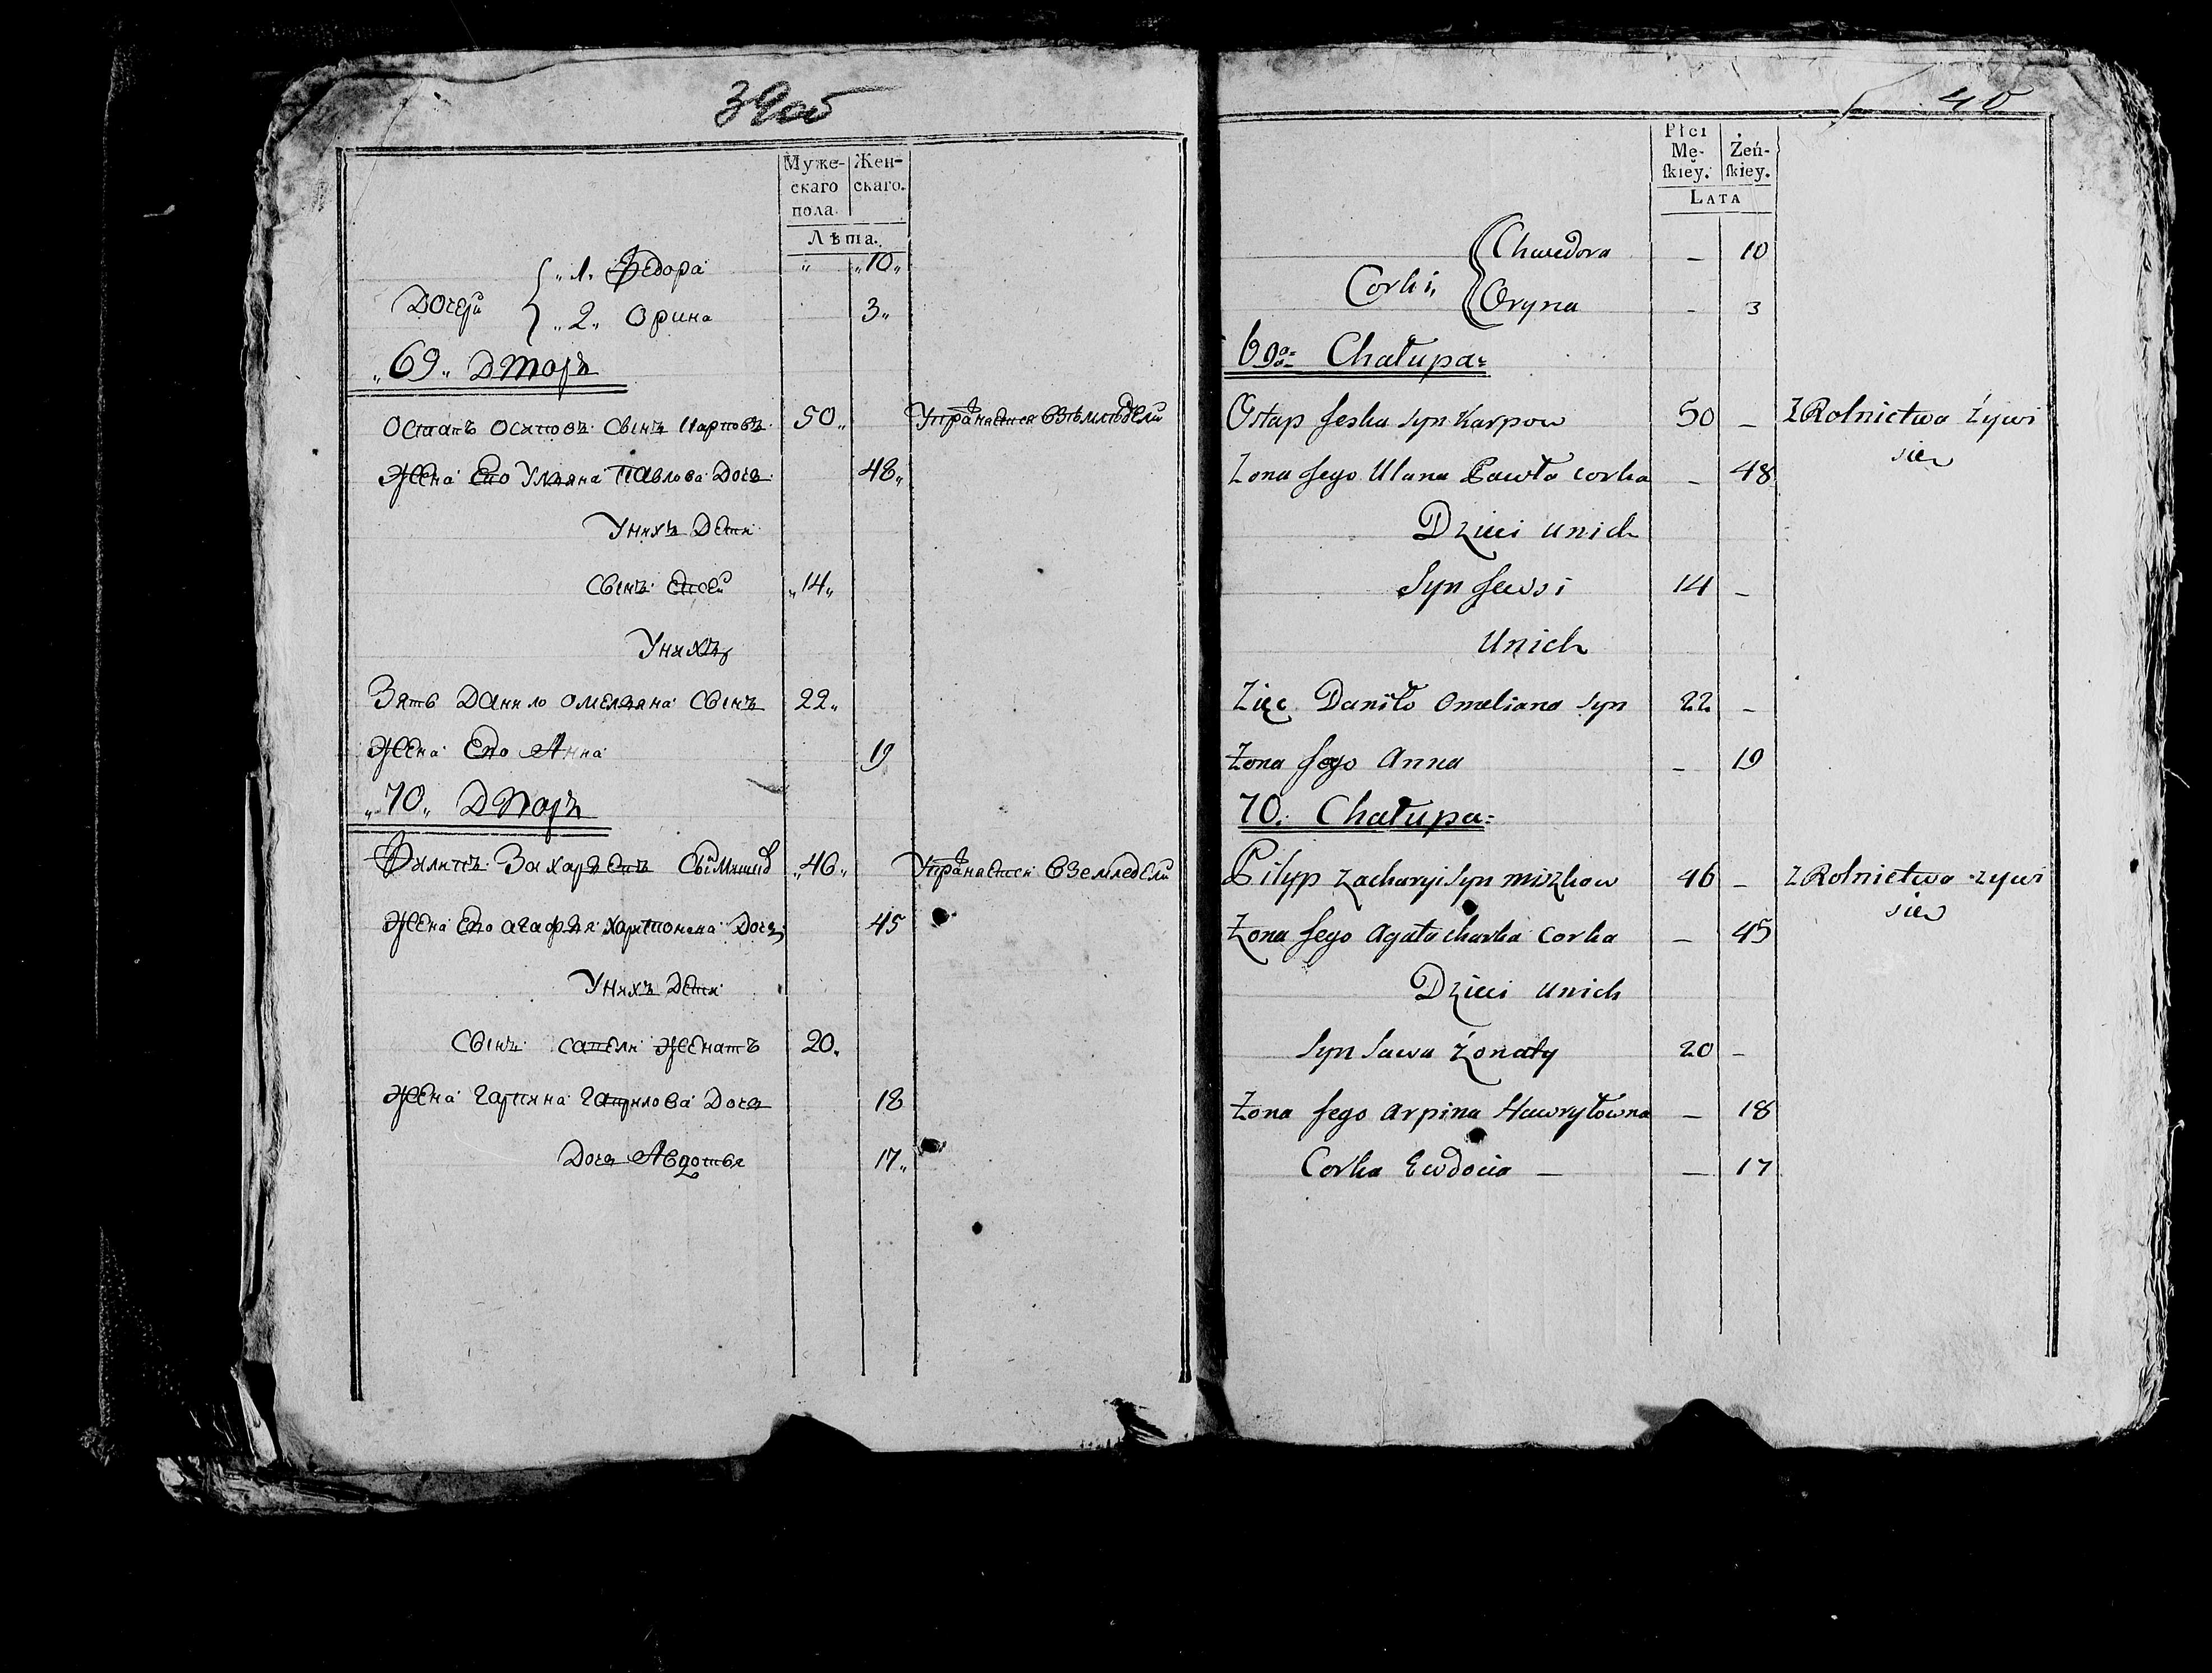 39об
Муже-
скаго
пола.
Жен-
скаго.
Лѣта.
Дочери
„1. Федора „ „10„
„2„ Орина 3„
„69„ Дворъ
Остапъ Осиповъ Сынъ Карповъ 50„
Жена Его Ульяна Павлова Дочь 48„
Унихъ Дети
Сынъ „14„
Унихъ
Зять Данило Омельяна Сынъ 22„
Жена Его Анна 19
„70„ Дворъ
Филипъ Захарьевъ „46„
Жена Его Агафья Харитонена Дочь 45
Унихъ Дети
Сынъ Савели Женатъ 20„
Жена Гарпина Гаврилова Дочь 18
Дочь Авдотья 17„
40
Płci
Mę-
ſkiey.
Żeń-
ſkiey.
LATA
Corki
Chwedora – 10
Oryna – 3
69a Chałupa
Ostap Jeska Syn Karpow 50 – Z Rolnictwa Żywi
sie
Zona Jego Ulana Pawła corka – 48
Dzieci unich
Syn Jewsi 14 –
Unich
Zięc Daniło Omeliana Syn 22 –
Żona Jego Anna – 19
70. Chałupa
Pilyp Zacharyi Syn Miszkow 46 – Z Rolnictwa zywi
sie
Żona Jego Agata Corka – 45
Dzieci unich
Syn Sawa Żonaty 20 –
Żona Jego Arpina Hawryłowna – 18
Corka Ewdocia – – 17